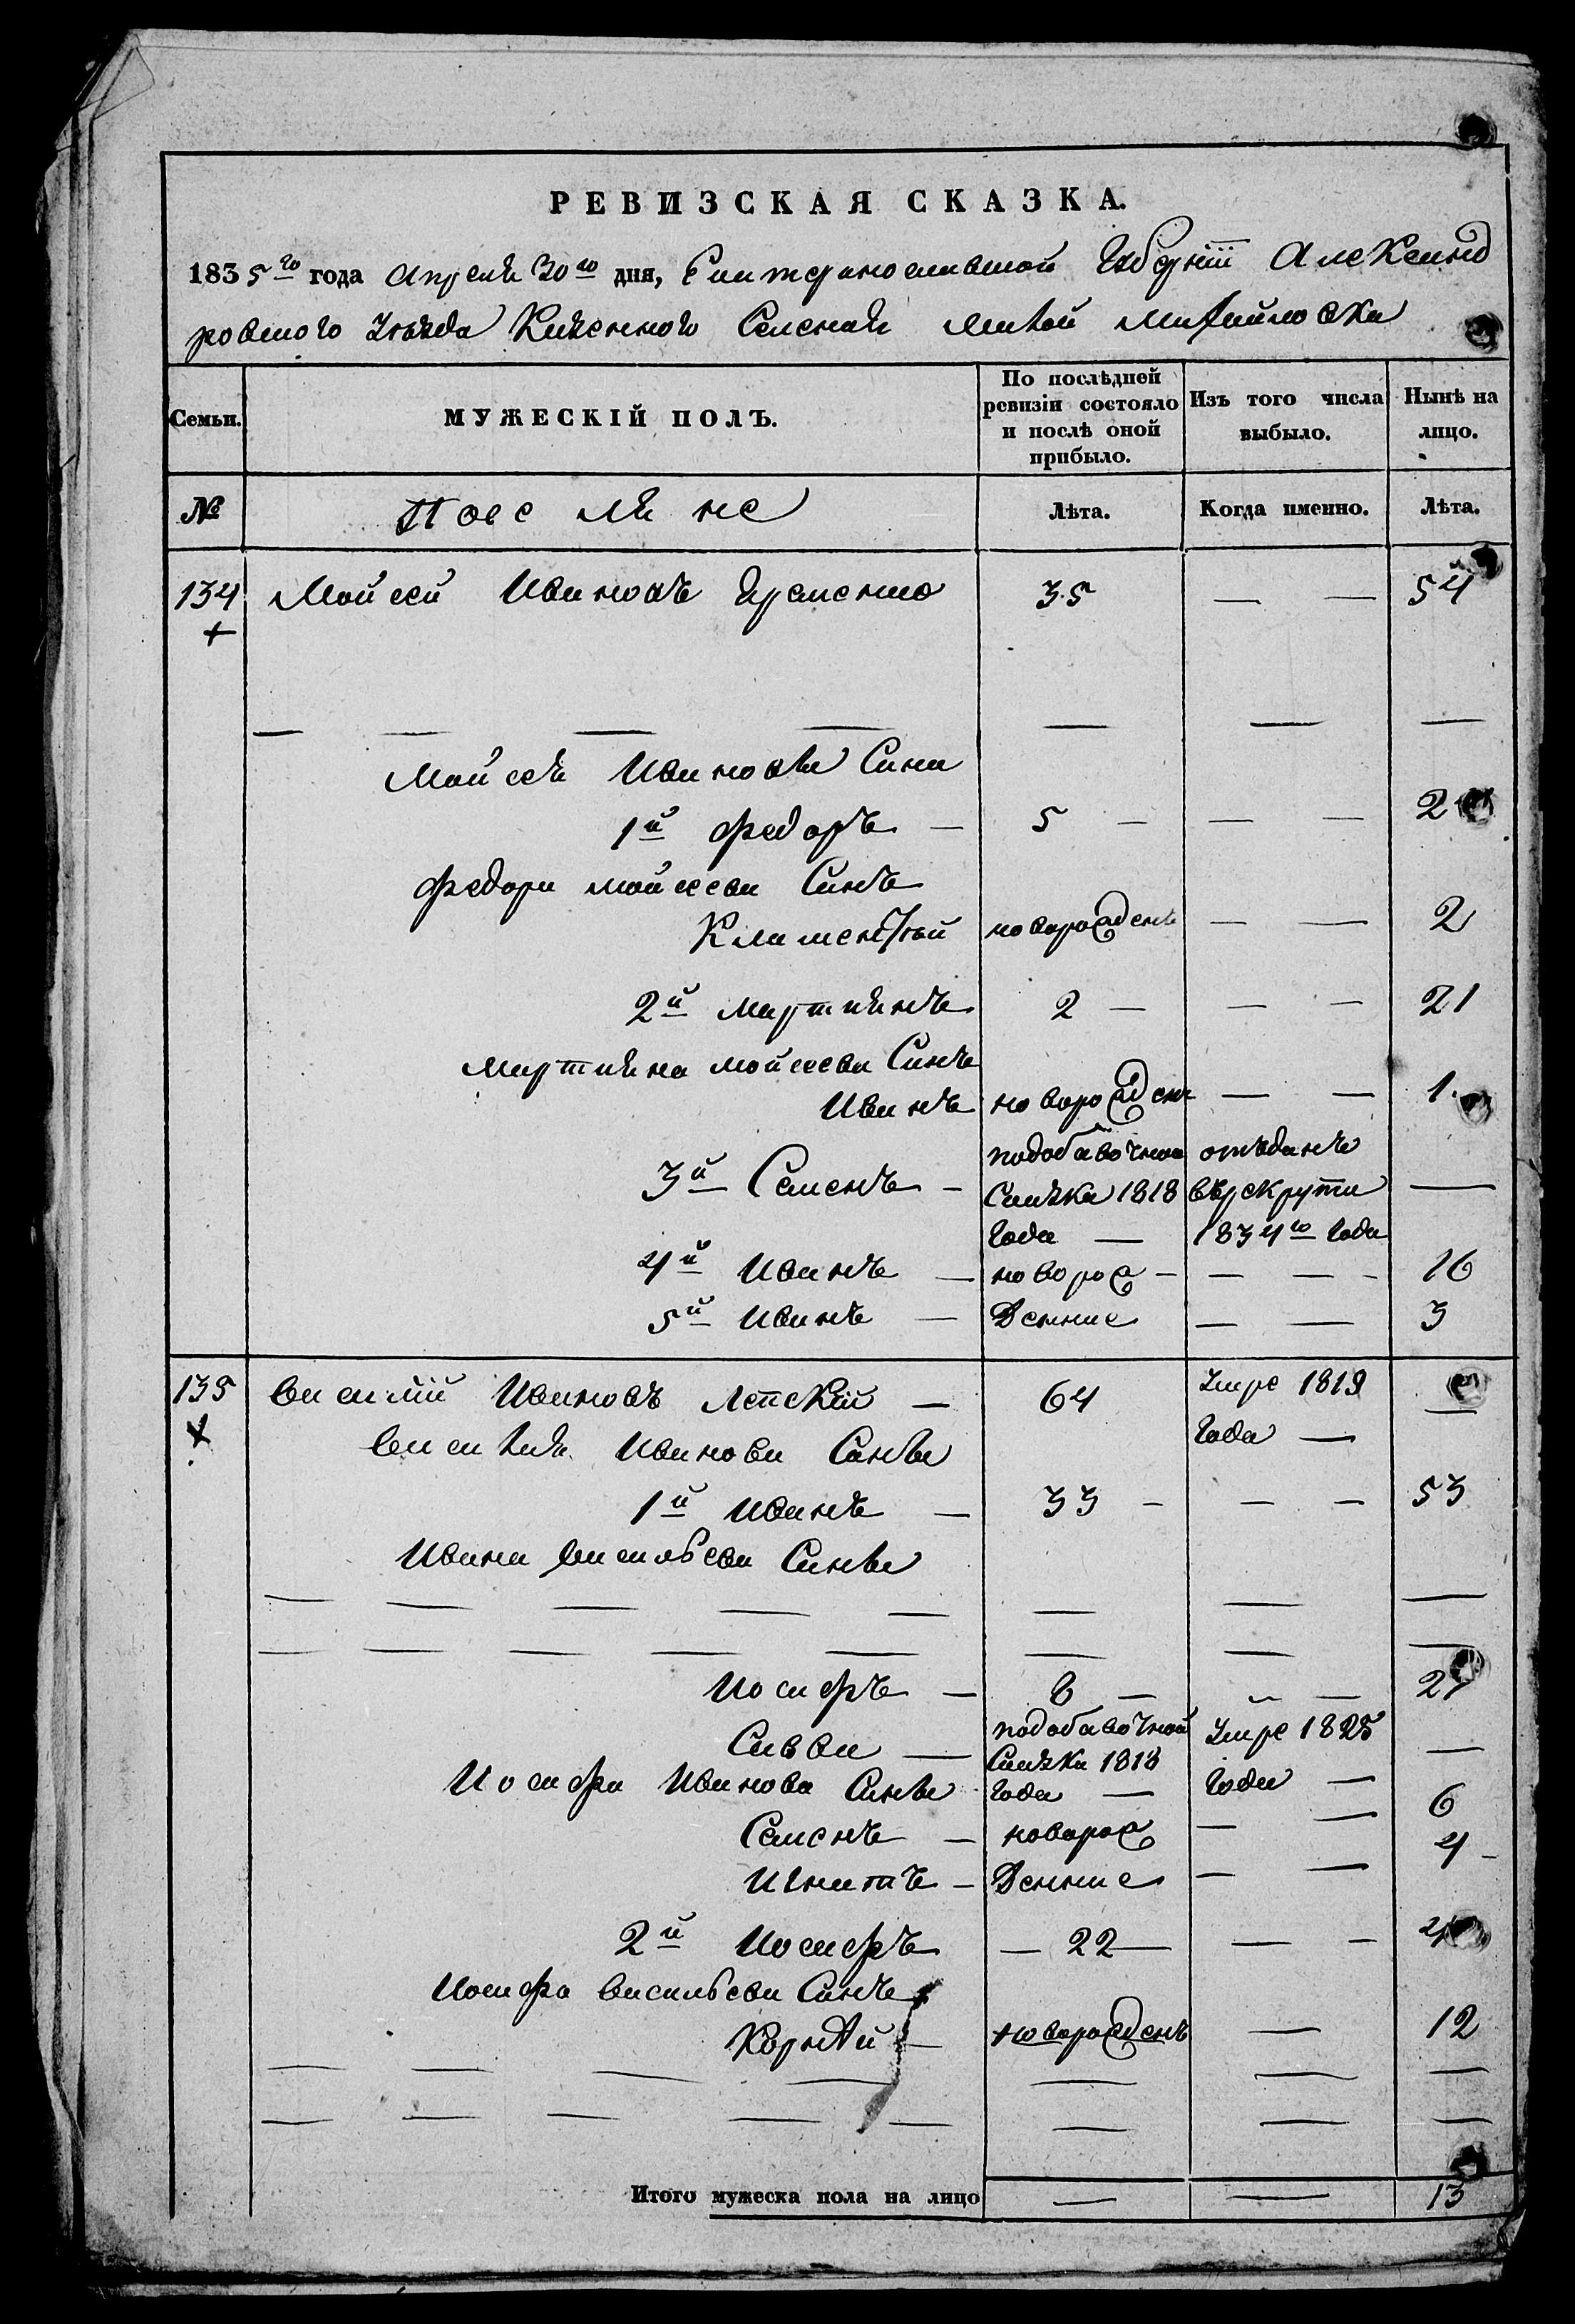 РЕВИЗСКАЯ СКАЗКА.
1835го года Апреля 30го дня, Екатериносланской Губернiи Александ
ровского Уѣзда Казенного Селенiя малой Михайловки
Семьи. МУЖЕСКІЙ ПОЛЪ. По послѣдней ревизіи состояло и послѣ оной прибыло. Изъ того числа выбыло. Нынѣ на лицо.
№ Поселяне Лѣта. Когда именно. Лѣта.
134 Мойсей Ивановъ 35 — — 54
— — — — — — —
Мойсея Иванова Сини
1й Федоръ — 5 — — — 2
Федора Мойсеева Синъ
Климентiй новорожденъ — — 2
2й Мартинъ 2 — — — 21
Мартина Мойсеева Синъ
Иванъ новорожденъ — — 1
3й Семенъ — подобавочной Сказки 1818 Года — отъданъ вѣрекруты 1834го Года —
4й Иванъ — новорож — — — 16
5й Иванъ — денние — — 3
135 Василій Ивановъ Лепскій — 64 Умре 1819 Года — —
Василiя Иванова Синви
1й Иванъ — 33 — — — 53
Ивана Васильева Синви
— — — — — — — —
— — — — — — — —
Иосифъ — 8 — — — 27
Савва — подобавочной Сказки 1818 Года — Умре 1825 Года — —
Иосифа Иванова Синви
Семенъ — новорож — — 6
Игнатъ — денние — — 4
2й Иосифъ — 22 — — —
Иосифа Васильева Синъ
Корнѣй — новорожденъ — 12
— — — — — — —
— — — — — — — —
Итого мужеска пола на лицо — — 13